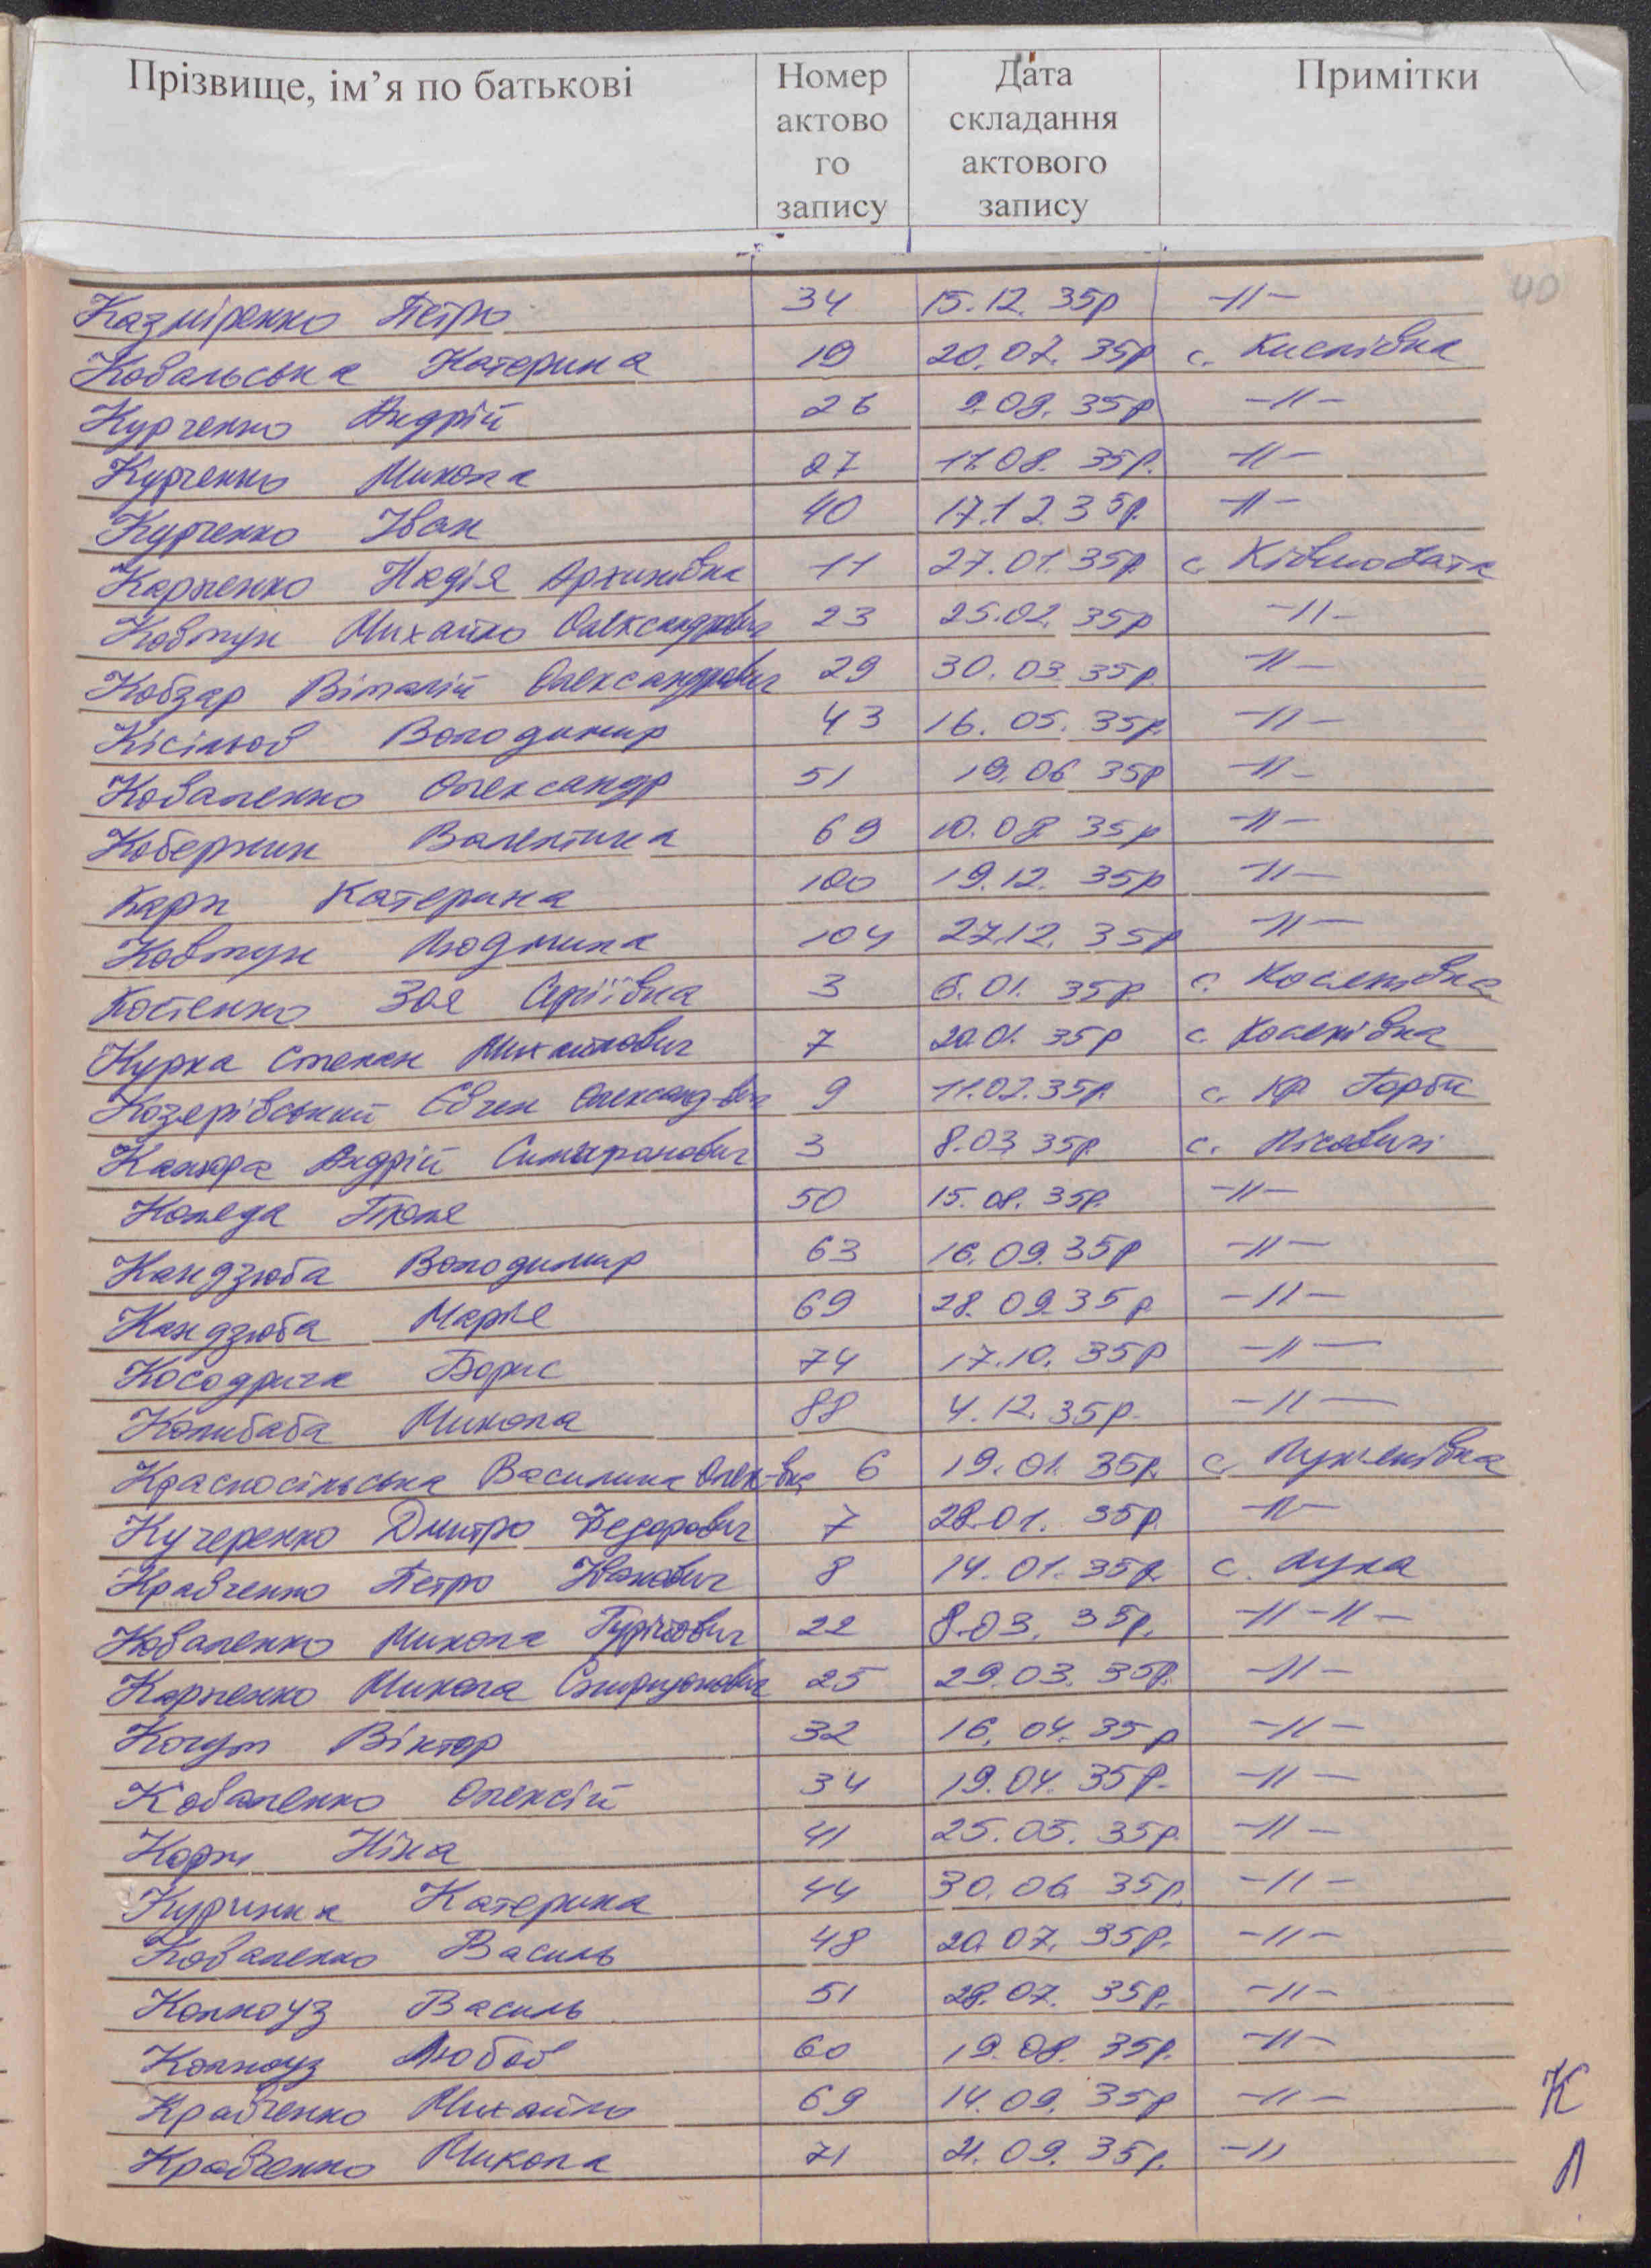 Прізвище, ім’я по батькові Номер актово го запису Дата складання актового запису Примітки
40
Казміренко Петро 34 15.12.35р -//-
Ковальська Катерина 19 20.07.35р с. Кислівка
Курченко Андрій 26 9.08.35р -//-
Курченко Микола 27 17.08.35р. -//-
Курченко Іван 40 17.12.35р. -//-
Карпенко Надія Архипівна 11 27.01.35р. с.
Ковтун Михайло Олександрович 23 25.02.35р -//-
Кобзар Віталій Олександрович 29 30.03.35р. -//-
Кісільов Володимир 43 16.05.35р. -//-
Коваленко Олександр 51 19.06 35р -//-
Коберник Валентина 69 10.08 35р -//-
Карп Катерина 100 19.12.35р -//-
Ковтун Людмила 104 27.12.35р -//-
Костенко Зоя Сергіївна 3 6.01.35р. с.
Курка Степан Михайлович 7 20.01.35р с.
Козерівський Євген Олександ-вич 9 11.02.35р. с. Кр. Горби
Канюра Андрій 3 8.03 35р. с. Лісовичі
50 15.08.35р. -//-
Кандзюба Володимир 63 16.09.35р -//-
Кандзюба Марія 69 28.09.35р. -//-
Косодрига Борис 74 17.10.35р -//-
Колибаба Микола 88 4.12.35р. -//-
Красносільська Василина Олек-вна 6 19.01.35р. с.
Кучеренко Дмитро Федорович 7 28.01.35р. -//-
Кравченко Петро Іванович 8 14.01.35р. с. Лука
Коваленко Микола 22 8.03.35р. -//-//-
Карпенко Микола Спиридонович 25 29.03.35р. -//-
Когут Віктор 32 16.04.35р -//-
Коваленко Олексій 34 19.04.35р. -//-
Корж Ніна 41 25.05.35р. -//-
Куринна Катерина 44 30.06 35р. -//-
Коваленко Василь 48 20.07.35р. -//-
Колноуз Василь 51 28.07.35р. -//-
Колноуз Любов 60 19.08.35р. -//-
Кравченко Михайло 69 14.09.35р -//-
К
Кравченко Микола 71 21.09.35р. -//
Л